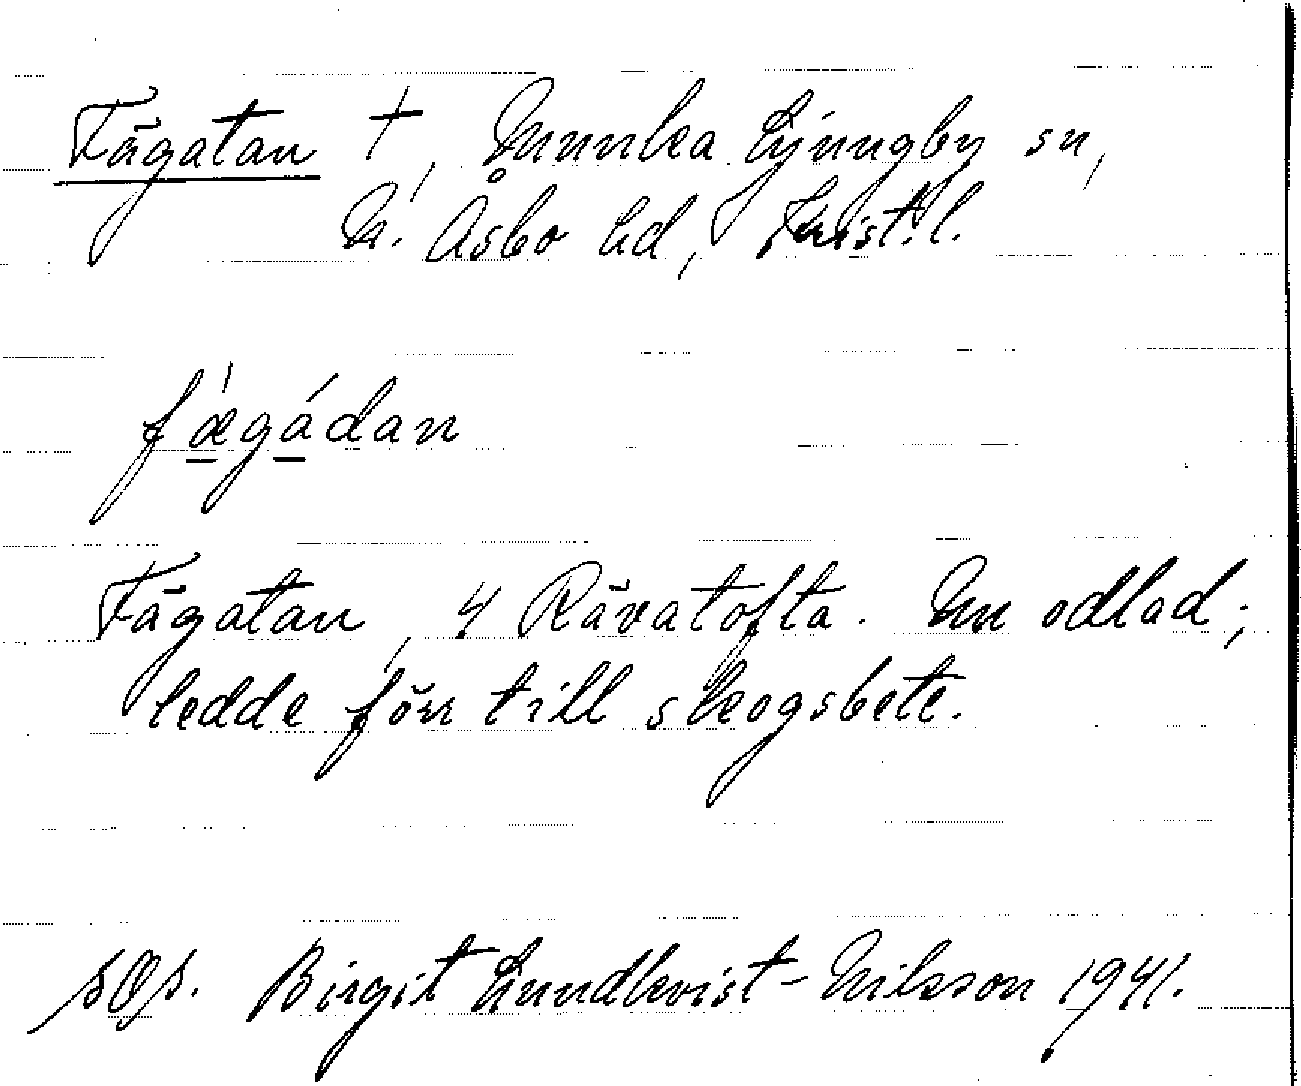 Fägatan †, Munka Ljungby sn,
N. Åsbo hd, Krist. l.
fǽgádan
Fägatan, 4 Rävatofta. Nu odlad;
ledde förr till skogsbete.
Birgit Lundkvist-Nilsson 1941.